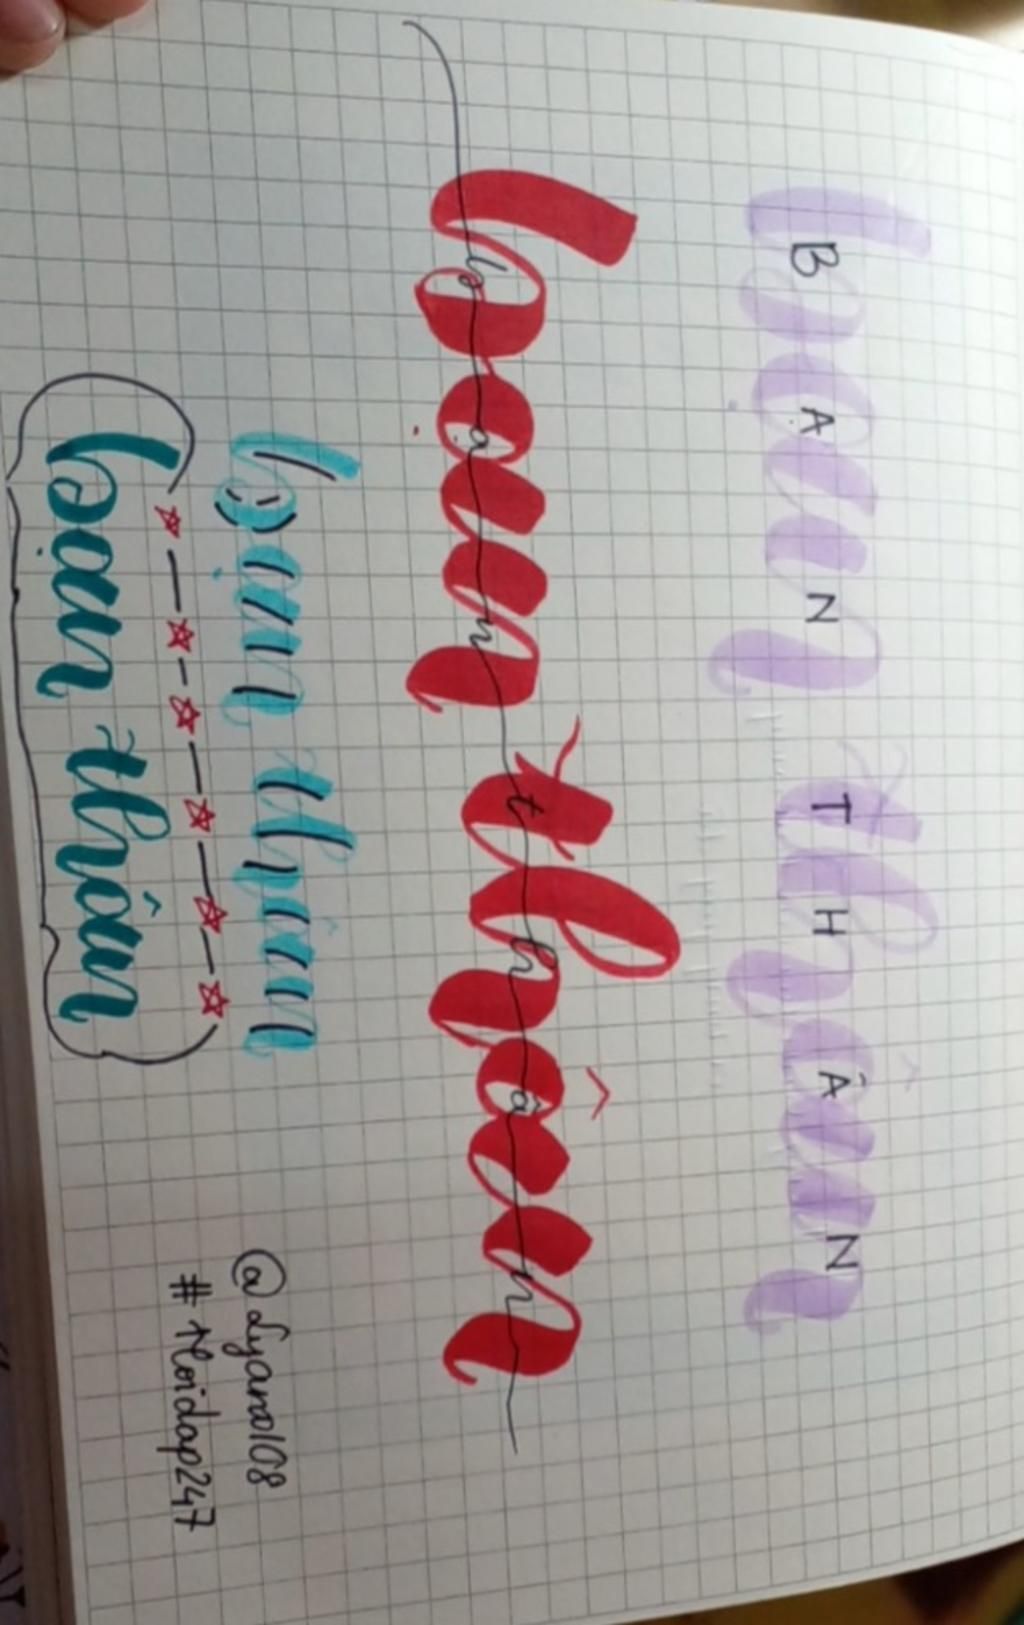 bạn thân
BẠN THÂN
bạn thân
bạn thân
bạn thân
bạn thân
@Lyana108
#Hoidap247